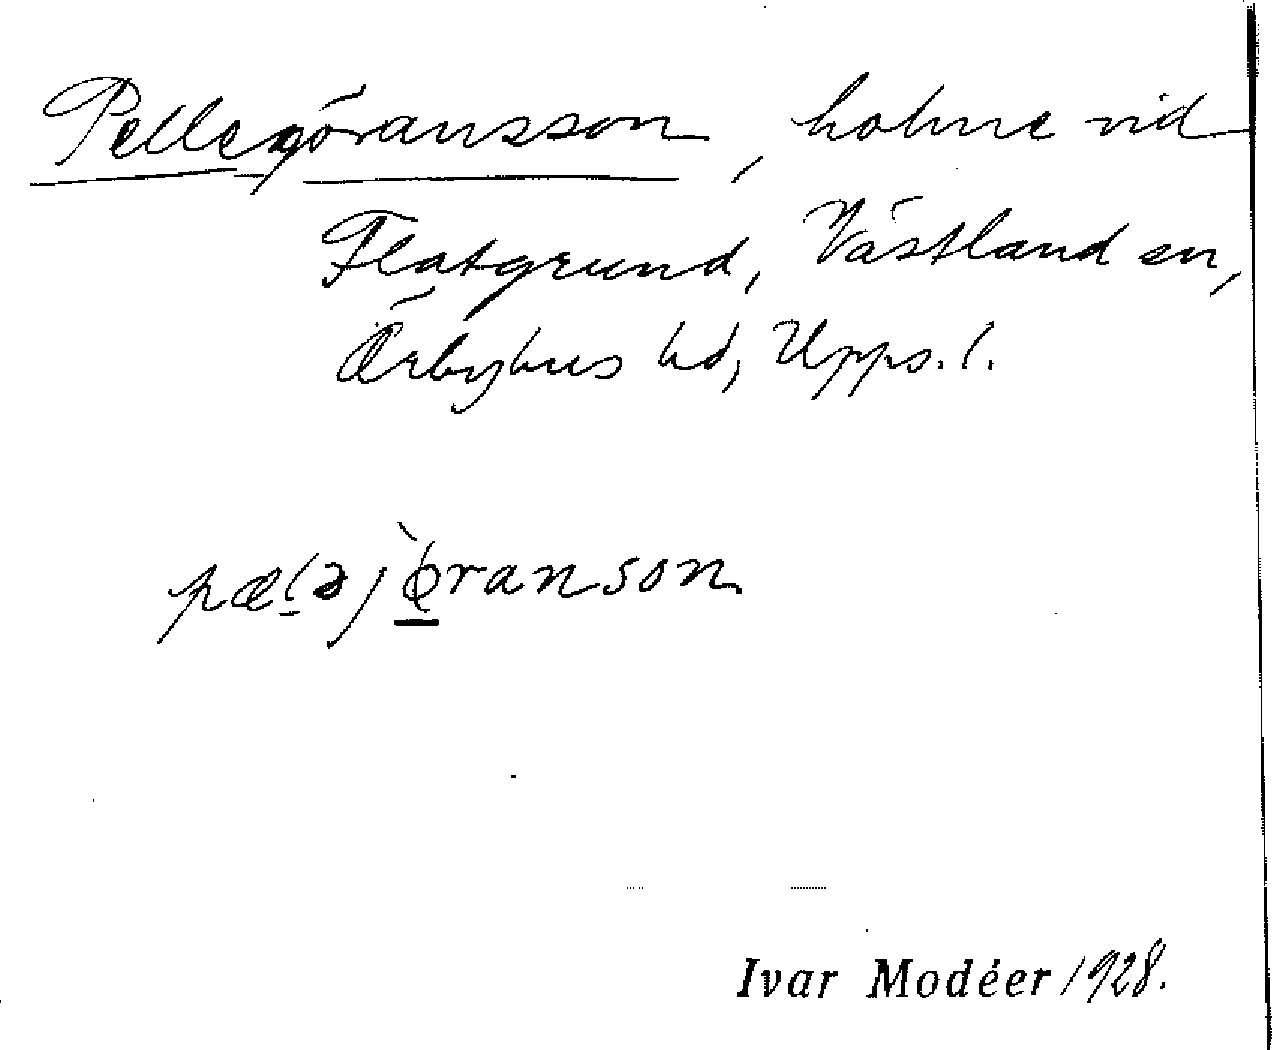 Pellegöransson, holme vid
Flatgrund, Västland sn,
Örbyhus hd, Upps. l.
pæləjöranson
Ivar Modéer 1928.